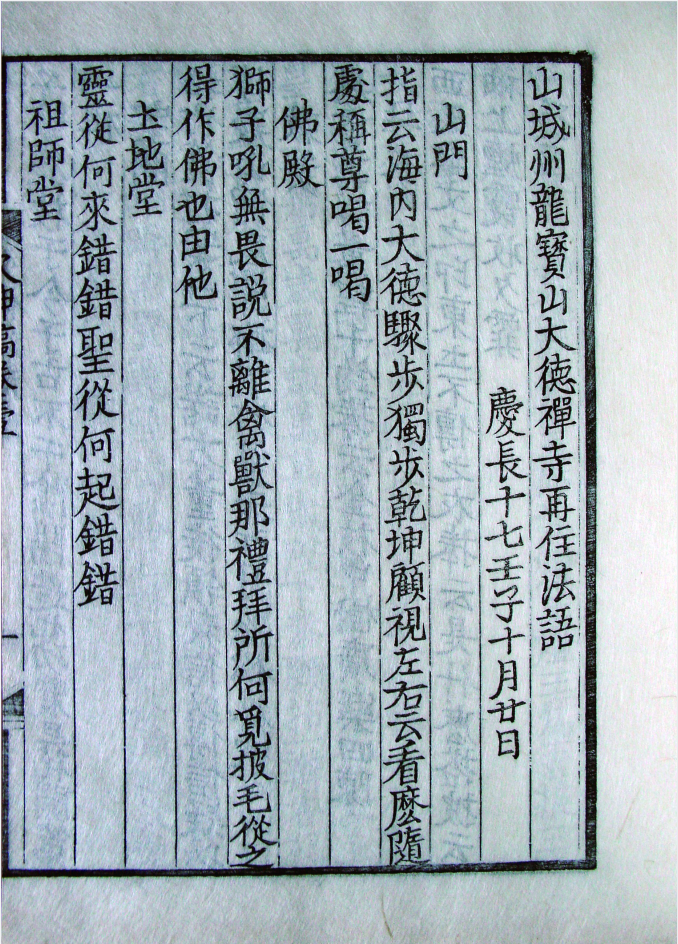 山城州龍寶山大徳禪寺再住法語
慶長十七壬子十月廿日
山門
指云海内大徳驟步獨步乾坤顧視左右云看麽隨
處稱尊喝一喝
佛殿
獅子吼無畏説不離禽獸那禮拜所何覓披毛從之
得作佛也由他
土地堂
靈從何來錯錯聖從何起錯錯
祖師堂